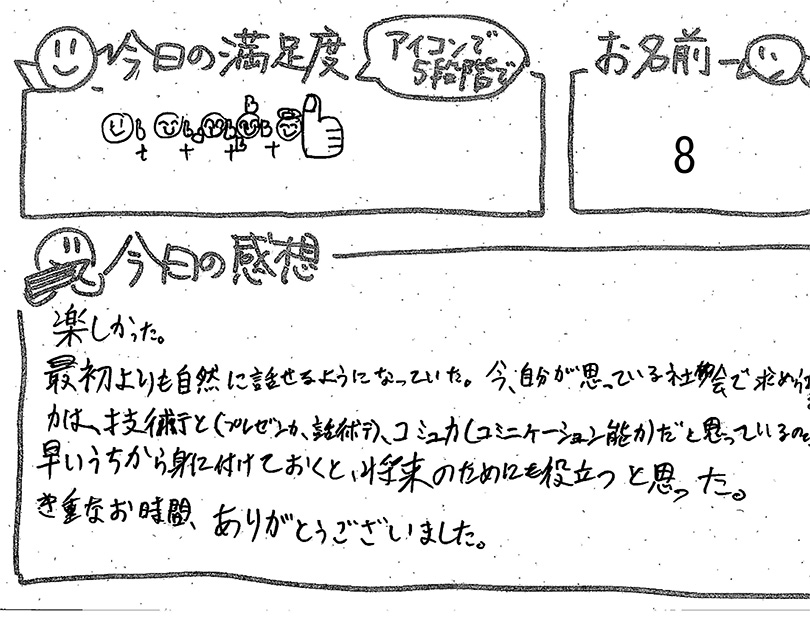 今日の満足度
アイコンで
5段階で
お名前
8
今日の感想
楽しかった。
最初よりも自然に話せるようになっていた。今、自分が思っている社会で求められ
力は、技術と(プレゼン力、話術デ)、コミュ力(コミニケーション能力)だと思っているので
早いうちから身に付けておくと、将来のためにも役立つと思った。
き重なお時間、ありがとうございました。